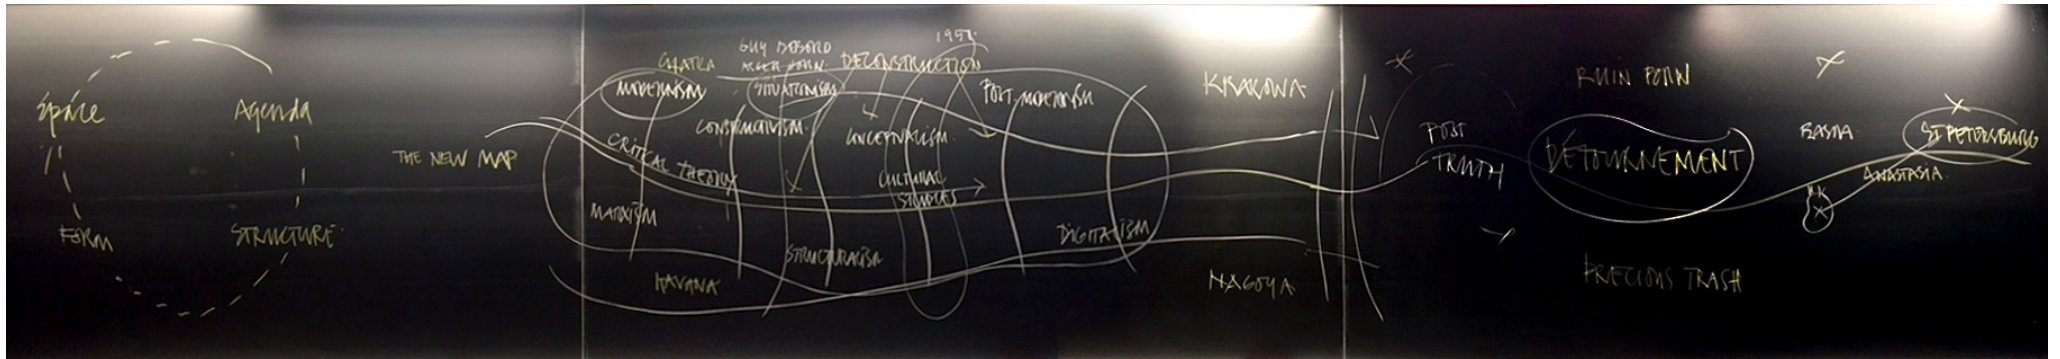 Space
Agenda
FORM
STRUCTURE
THE NEW MAP
GUY DEBORD
ASGER JORN
DECONSTRUCTION
MODERNISM
SITUATIONISM
POST-MODERNISM
CONSTRUCTIVISM
CONCEPTUALISM
CRITICAL THEORY
CULTURAL
STUDIES
MARXISM
STRUCTURALISM
DIGITALISM
HAVANA
KRAKOWA
NAGOYA
POST
TRUTH
RUIN PORN
DÉTOURNEMENT
PRECIOUS TRASH
ST PETERSBURG
ANASTASIA